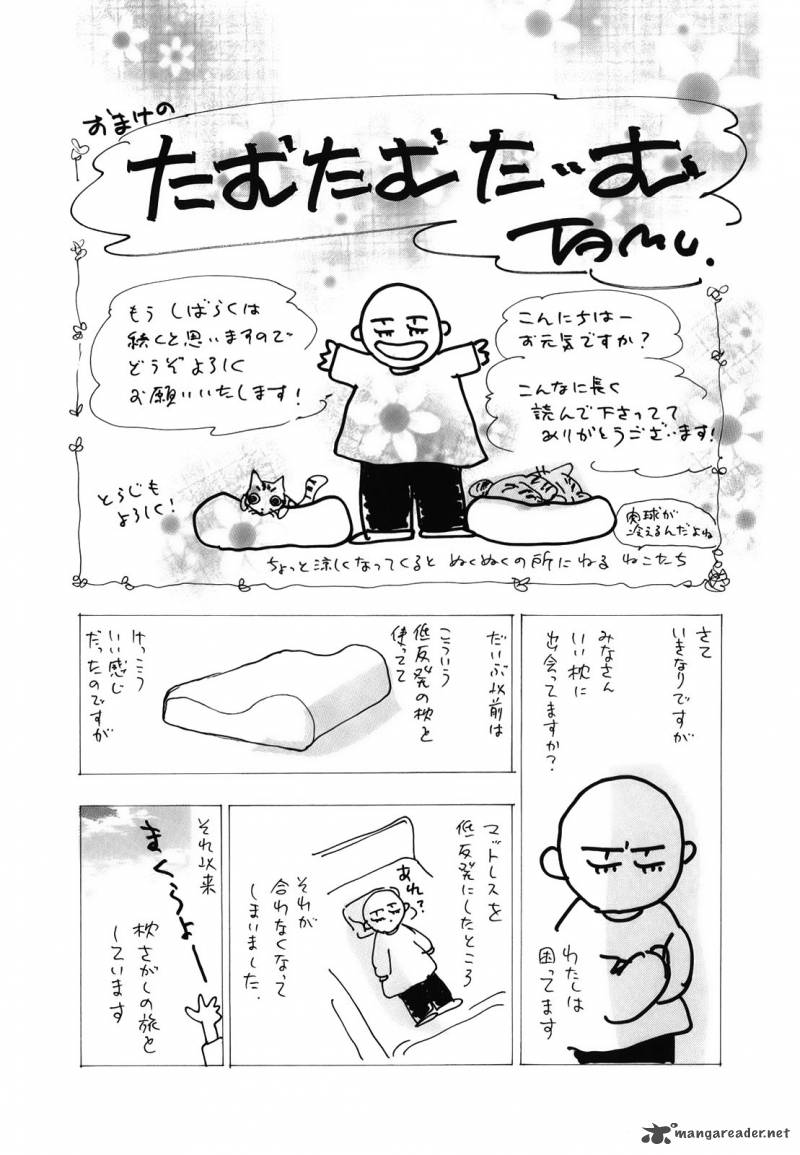 おまけの
たむたむたーいむ
TAMU.
こんにちはー
お元気ですか?
こんなに長く
読んで下さってて
ありがとうございます!
もう しばらくは
続くと思いますので
どうぞよろしく
お願いいたします!
とらじも
よろしく!
肉球が
冷えるんだよね
ちょっと涼しくなってくると ぬくぬくの所にねる ねこたち
さて
いきなりですが
みなさん
いい枕に
出会ってますか?
わたしは
困ってます
だいぶ以前は
こういう
低反発の枕を
使ってて
けっこう
いい感じ
だったのですが
マットレスを
低反発にしたところ
あれ?
それが
合わなくなって
しまいました.
それ以来
まくらよー
枕さがしの旅を
しています
mangareader.net